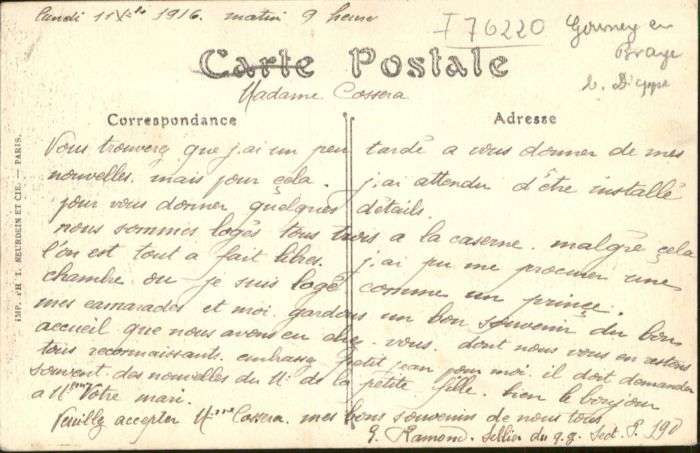 Lundi 11 Xbre 1916. matin 9 heure
I 76220 Gournay en
Braye
S. Dieppe
Carte Postale
Madame Cossera
Correspondance
Adresse
Vous trouverez que j.ai un peu tardé a vous donner de mes
nouvelles. mais pour çela. j.ai attendu d'être installé
pour vous donner quelques détails.
nous sommes logés tous trois a la caserne. malgrè çela
l'on est tout a fait libres. j.ai pu me procurer une
chambre ou je suis logé comme un prince.
mes camarades et moi. gardons un bon souvenir du bon
accueil que nous avons eu chez. vous. dont nous vous en restons
tous reconnaissants. embrassez petit jean pour moi. il doit demander
souvent. des nouvelles du Mr. de la petite fille. bien le bonjour
a Mr Votre mari.
Veuillez accepter Mme Cossera. mes bons souvenirs de nous tous
G. Ramond. Sellier du q.g. Sect. P. 190
IMP. PH T. NEURDEIN ET CIE. — PARIS.